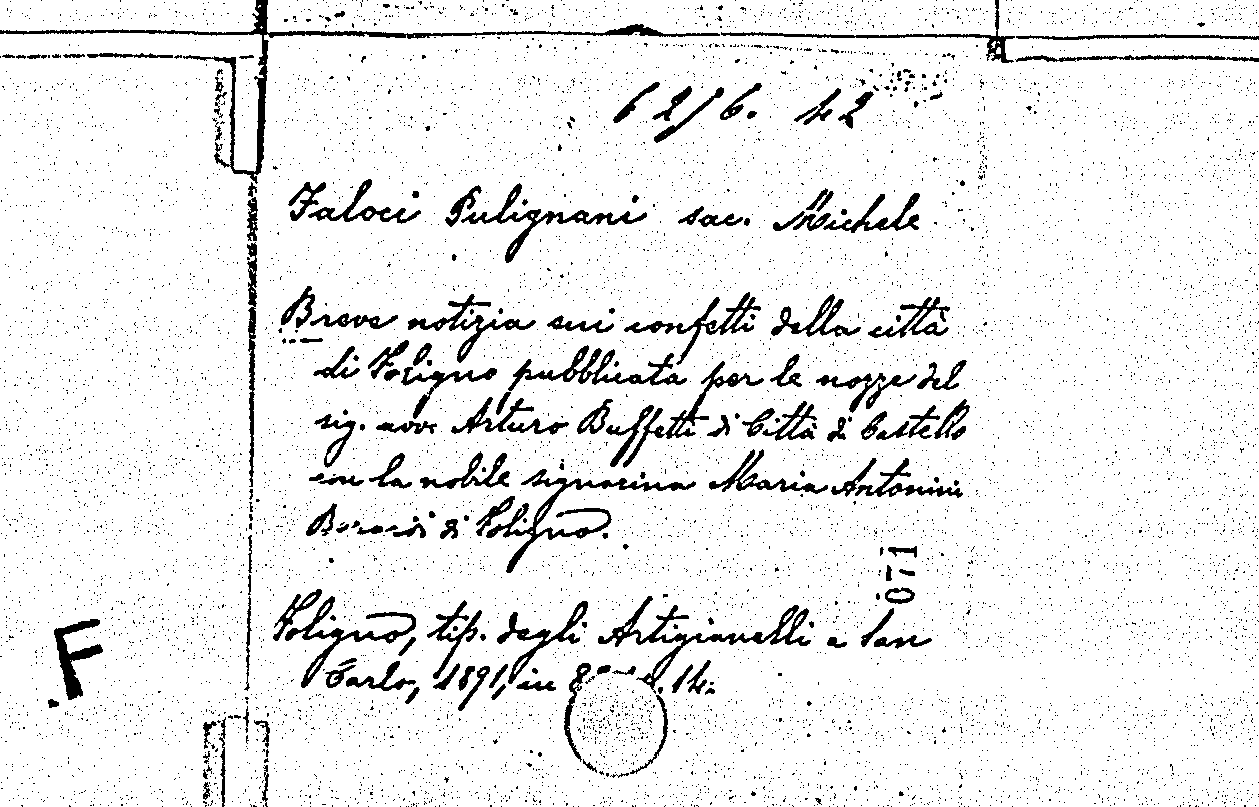 6276. 42
Faloci Pulignani sac. Michele
Breve notizia sui confetti della città
di Foligno pubblicata per le nozze del
sig. avv. Arturo Buffetti di Città di Castello
con la nobile signorina Maria Antonini
di Foligno.
071
Foligno, tip. degli Artigianelli a San
Carlo, 1891, in 8 14.
F